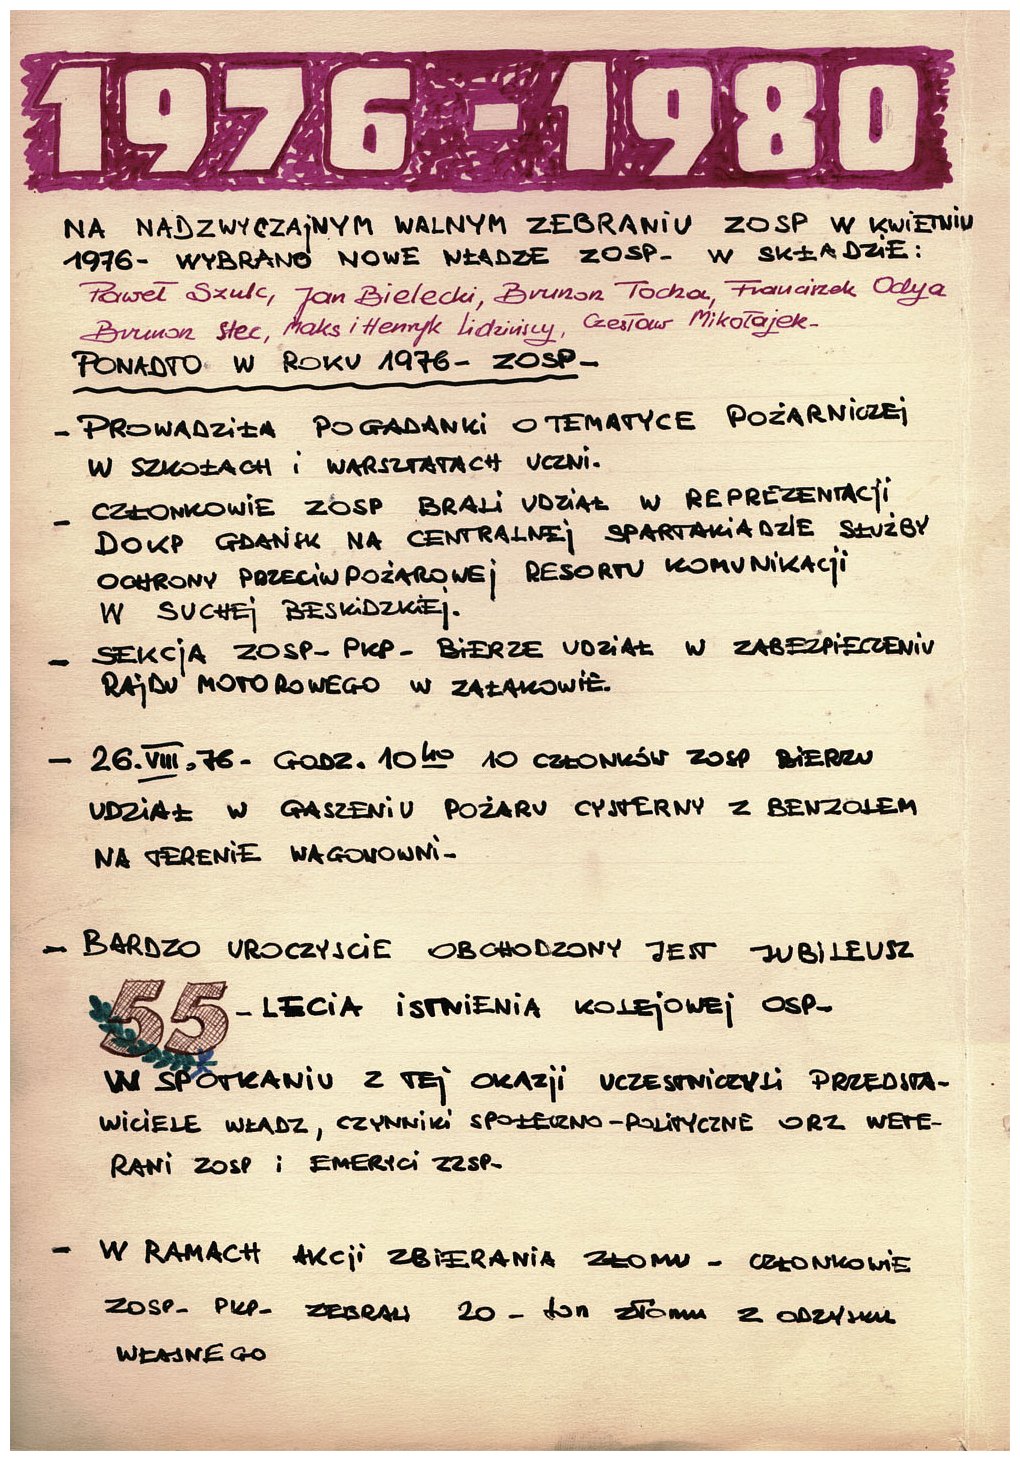 1976-1980
NA NADZWYCZAjNYM WALNYM ZEBRANIU ZOSP W KWIETNIU
1976- WYBRANO NOWE WŁADZE ZOSP- W SKŁADZiE:
Paweł Szulc, Jan Bielecki, Brunon Tocha, Franciszek Odya
Brunon Stec, Maks i Henryk Lidzińscy, Czesław Mikołajek-
PONADTO W ROKU 1976- ZOSP-
- PROWADZiŁA POGADANKi O TEMATYCE POŻARNiCZEj
W SZKOŁACH i WARSZTATACH UCZNi.
- CZŁONKOWiE ZOSP BRALi UDZiAŁ W REPREZENTACji
DOKP GDAŃSK NA CENTRALNEj SPARTAKiADZiE SŁUŻBY
OCHRONY PRZECiWPOŻAROWEj RESORTU KOMUNiKACji
W SUCHEj BESKiDZKiEj.
- SEKCjA ZOSP- PKP- BiERZE UDZiAŁ W ZABEZPiECZENiU
RAjDU MOTOROWEGO W ZAŁAKOWiE.
- 26.VIII.76- GODZ. 10⁴⁰ 10 CZŁONKÓW ZOSP BiERZU
UDZiAŁ W GASZENiU POŻARU CYSTERNY Z BENZOLEM
NA TERENiE WAGONOWNi-
- BARDZO UROCZYSCiE OBCHODZONY JEST JUBiLEUSZ
55-LECiA iSTNiENiA KOLEjOWEj OSP-
W SPOTKANiU Z TEj OKAZji UCZESTNiCZYLi PRZEDSTA-
WiCiELE WŁADZ, CZYNNiKi SPOŁECZNO-POLiTYCZNE ORZ WETE-
RANi ZOSP i EMERYCi ZZSP-
- W RAMACH AKCji ZBiERANiA ZŁOMU - CZŁONKOWiE
ZOSP- PKP- ZEBRALi 20 - ton złomu Z ODZYSKU
WŁASNEGO